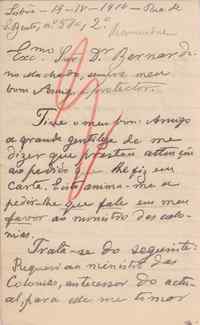 Lisboa - 19-IV-1914 - Rua de
S. Bento, nº 580, 2º
Exc.mo Snr. Dr. Bernardi-
no Machado, sempre meu
bom Amigo e protector.
Teve o meu bom Amigo
a grande gentileza de me
dizer que prestou attenção
ao pedido que lhe fiz em
carta. Isto anima-me a
pedir-lhe que fale em meu
favor ao ministro das colo-
nias.
Trata-se do seguinte:
Requeri ao ministro das
Colonias, antecessor do actu-
al, para ir de me timor